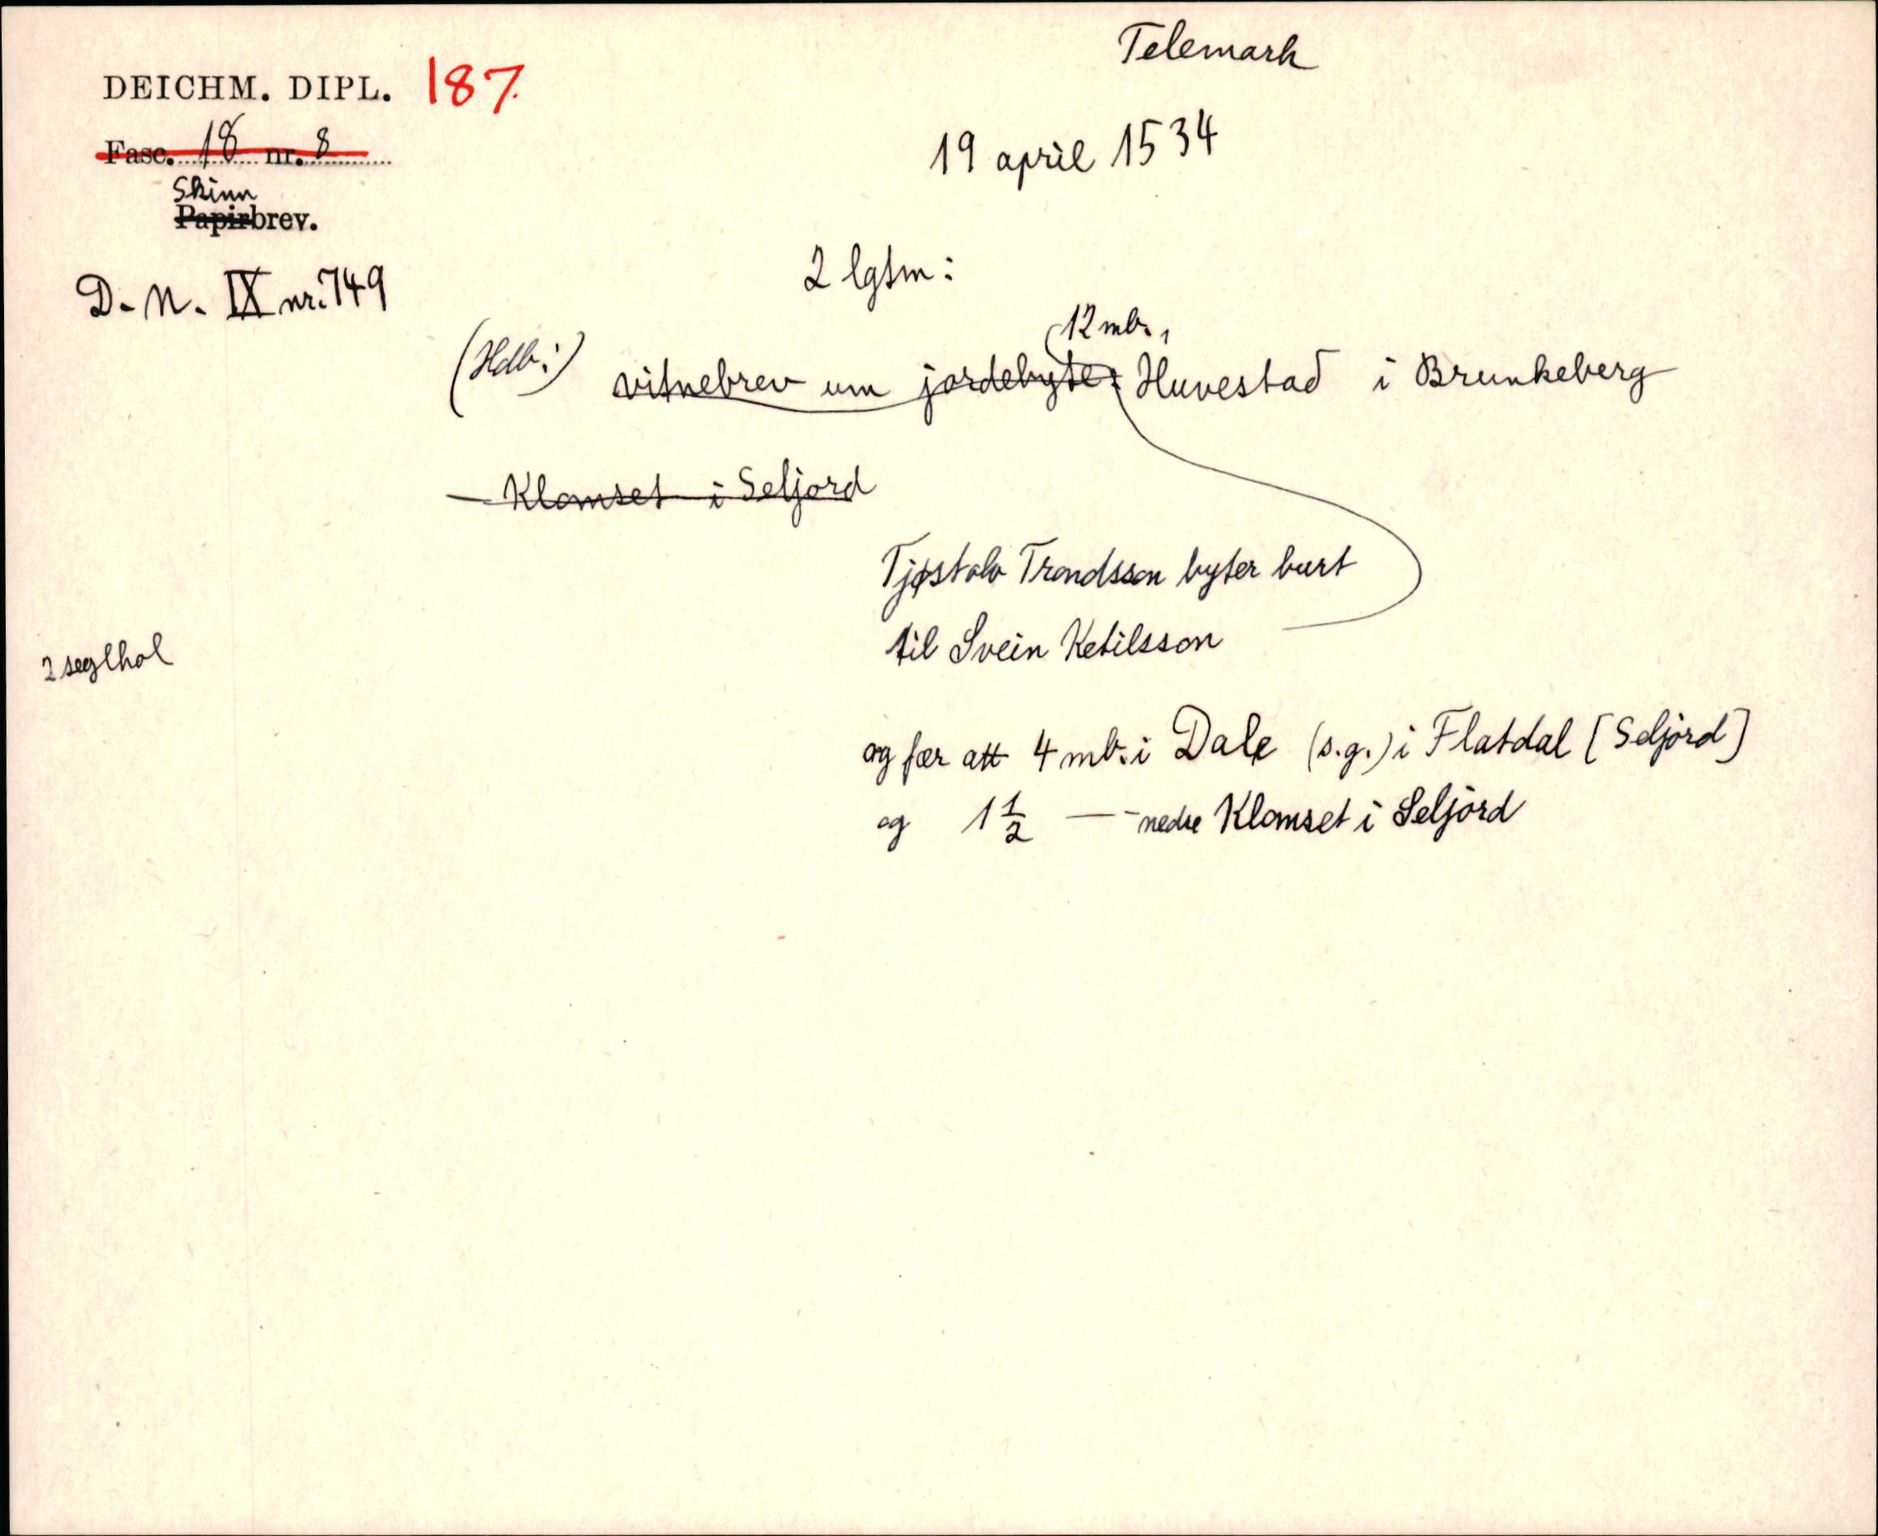 Telemark
DEICHM. DIPL. 187.
19 april 1534
Fasc. 18 nr. 8
Skinn
Papirbrev.
D. N. IX nr. 749
2 lgtm:
12 mb.,
(Hdb:) vitnebrev um jordebyte: Huvestad i Brunkeberg
— Klomset i Seljord
Tjøstolv Trondsson byter burt
til Svein Ketilsson
2 seglhol
og fær att 4 mb. i Dale (s.g.) i Flatdal [Seljord]
og 1 1/2 — - nedre Klomset i Seljord